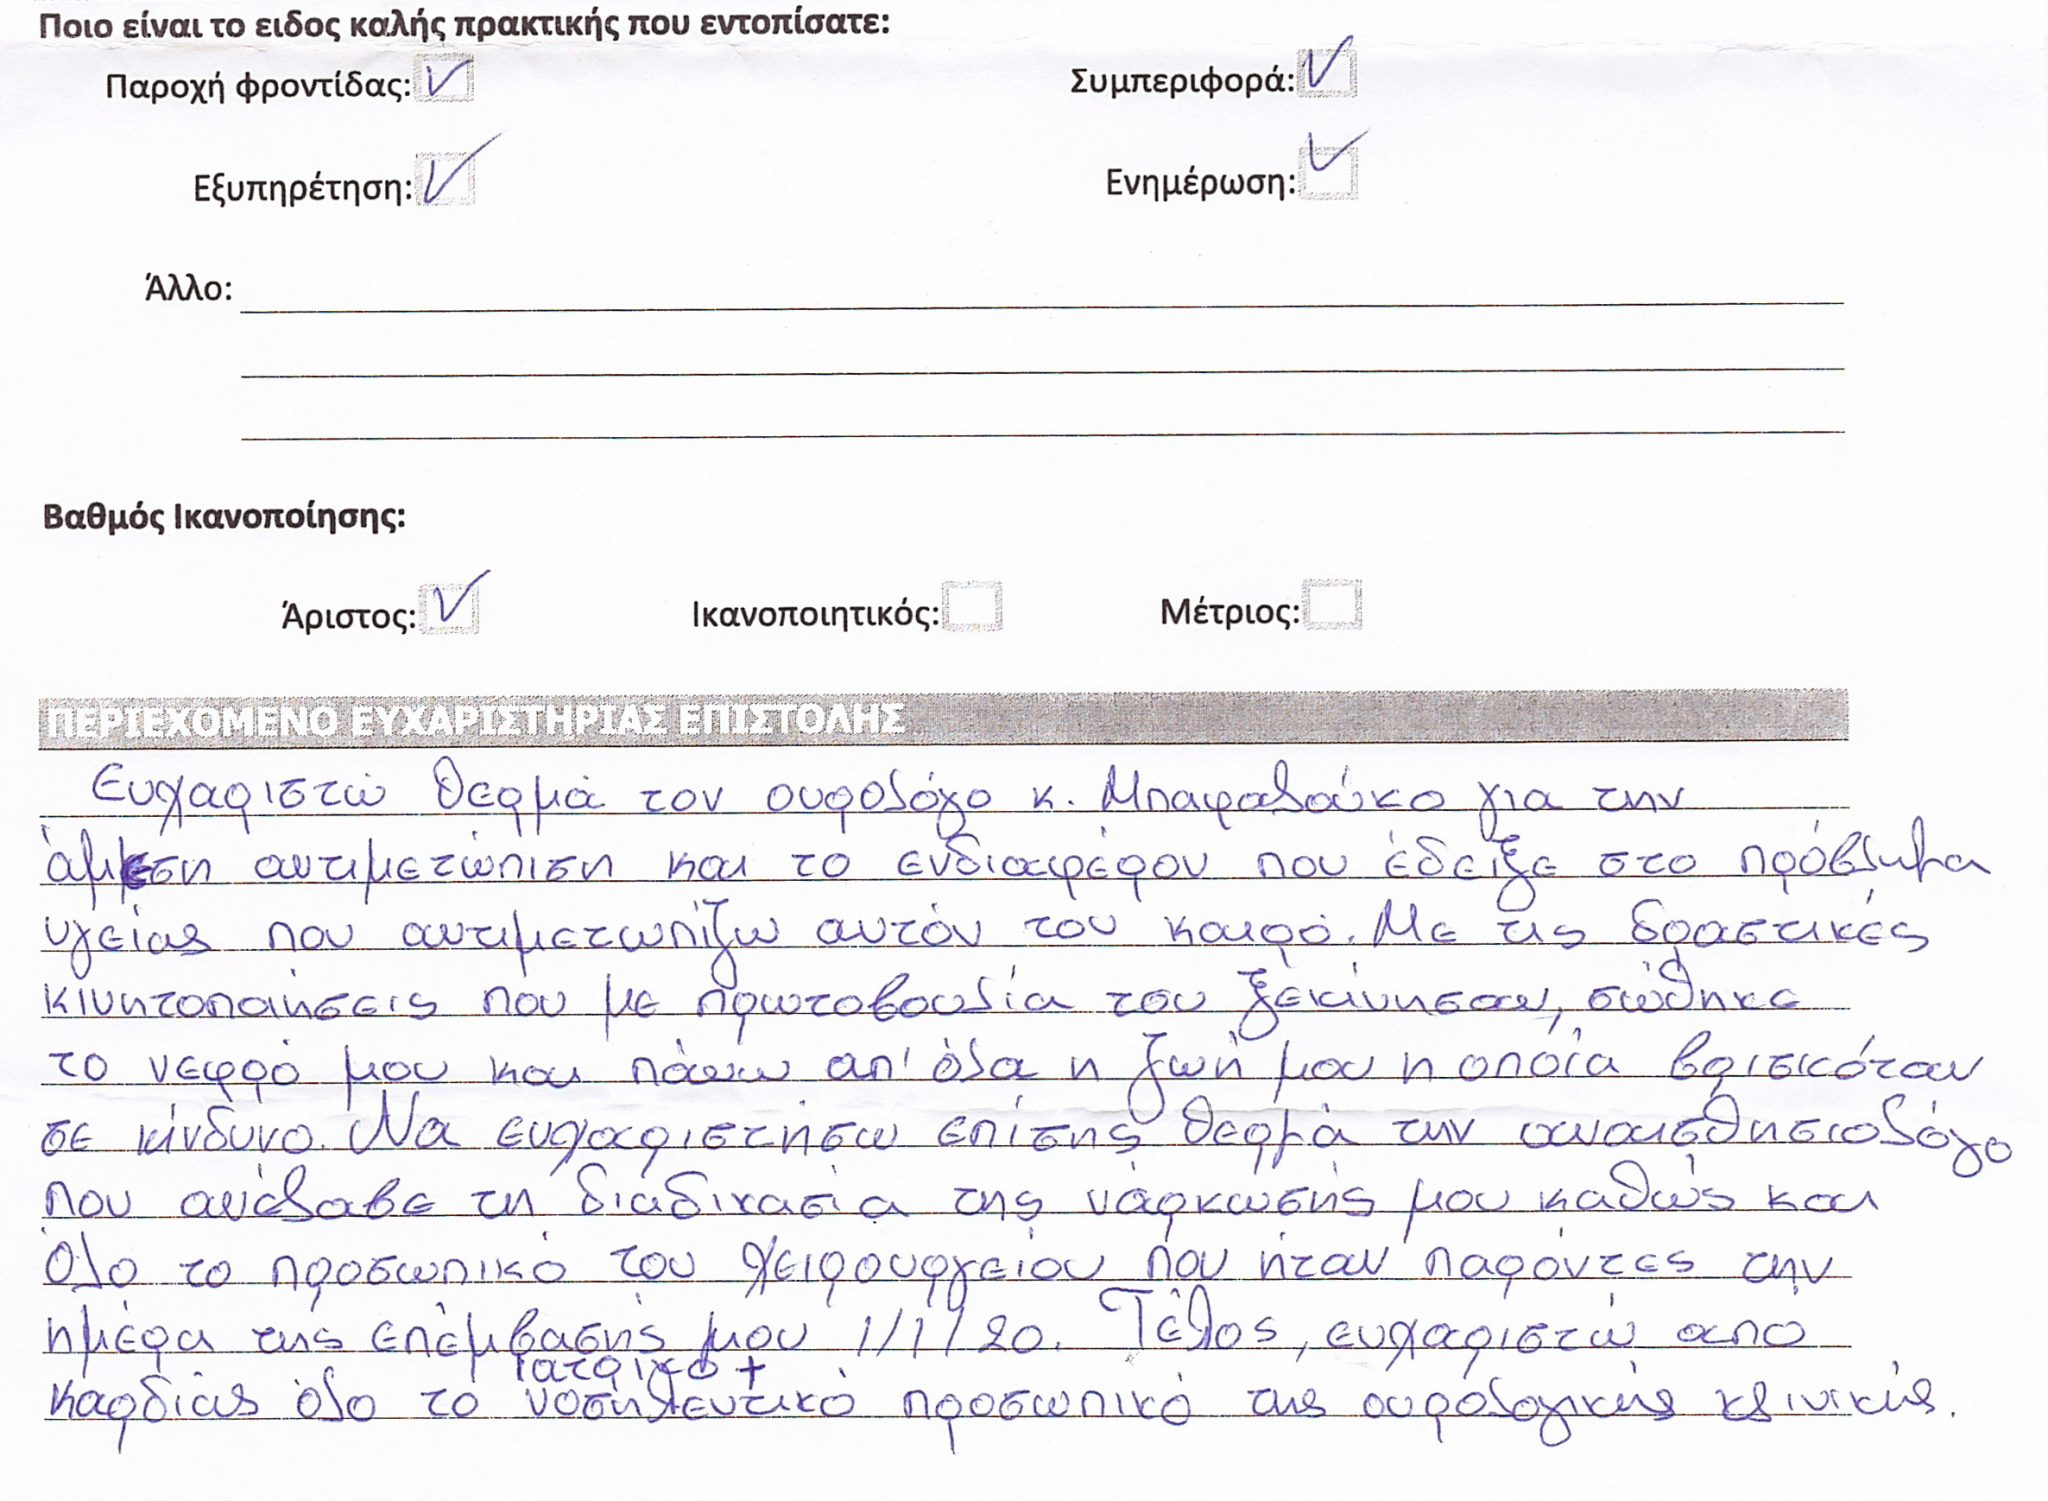 Ποιο είναι το ειδος καλής πρακτικής που εντοπίσατε:
Παροχή φροντίδας: Συμπεριφορά:
Εξυπηρέτηση: Ενημέρωση:
Άλλο:
Βαθμός Ικανοποίησης:
Άριστος: Ικανοποιητικός: Μέτριος:
ΠΕΡΙΕΧΟΜΕΝΟ ΕΥΧΑΡΙΣΤΗΡΙΑΣ ΕΠΙΣΤΟΛΗΣ
Ευχαριστώ θερμά τον ουρολόγο κ. Μπαραδάκο για την
άμεση αντιμετώπιση και το ενδιαφέρον που έδειξε στο πρόβλημα
υγείας που αντιμετωπίζω αυτόν τον καιρό. Με τις δραστικές
κινητοποιήσεις που με πρωτοβουλία του ξεκίνησαν, σώθηκε
το νεφρό μου και πάνω απ' όλα η ζωή μου η οποία βρισκόταν
σε κίνδυνο. Να ευχαριστήσω επίσης θερμά την αναισθησιολόγο
που ανέλαβε τη διαδικασία της νάρκωσής μου καθώς και
όλο το προσωπικό του χειρουργείου που ήταν παρόντες την
ημέρα της επέμβασής μου 1/1/20. Τέλος, ευχαριστώ από
ιατρικό +
καρδιάς όλο το νοσηλευτικό προσωπικό της ουρολογικής κλινικής.